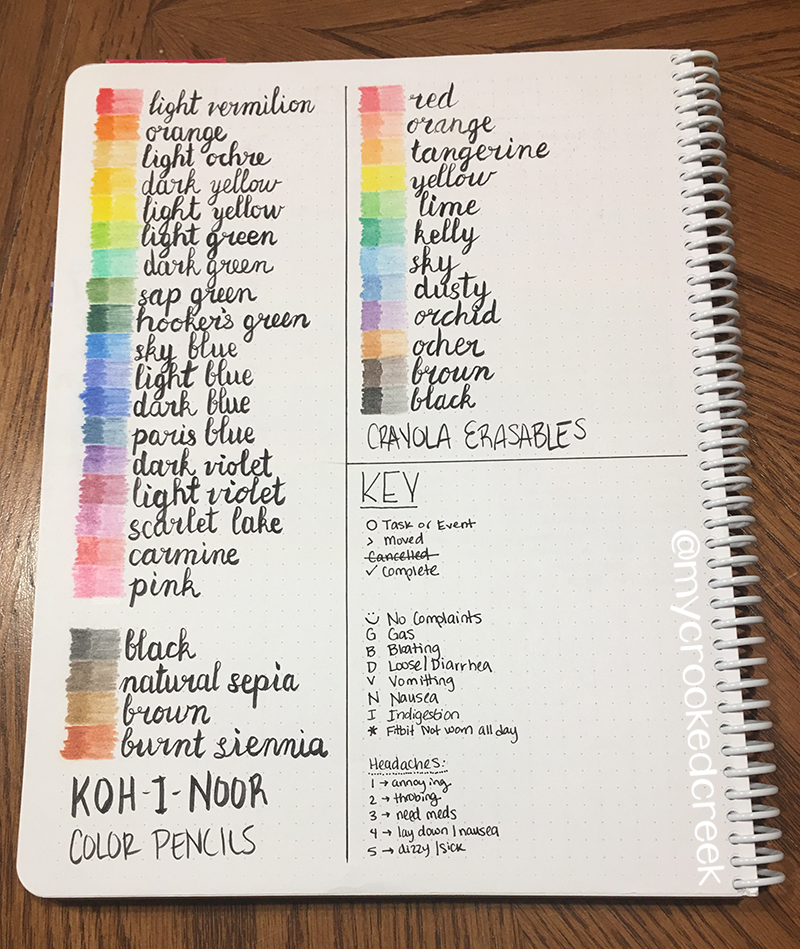 light vermilion
orange
light ochre
dark yellow
light yellow
light green
dark green
sap green
hooker's green
sky blue
light blue
dark blue
paris blue
dark violet
light violet
scarlet lake
carmine
pink
black
natural sepia
brown
burnt siennia
KOH-I-NOOR
COLOR PENCILS
red
orange
tangerine
yellow
lime
kelly
sky
dusty
orchid
ocher
brown
black
CRAYOLA ERASABLES
KEY
O Task or Event
> Moved
Cancelled
✓ Complete
No Complaints
G Gas
B Bloating
D Loose/Diarrhea
V Vomitting
N Nausea
I Indigestion
* Fitbit Not worn all day
Headaches:
1 → annoying
2 → throbing
3 → need meds
4 → lay down/nausea
5 → dizzy/sick
@mycrookedcreek